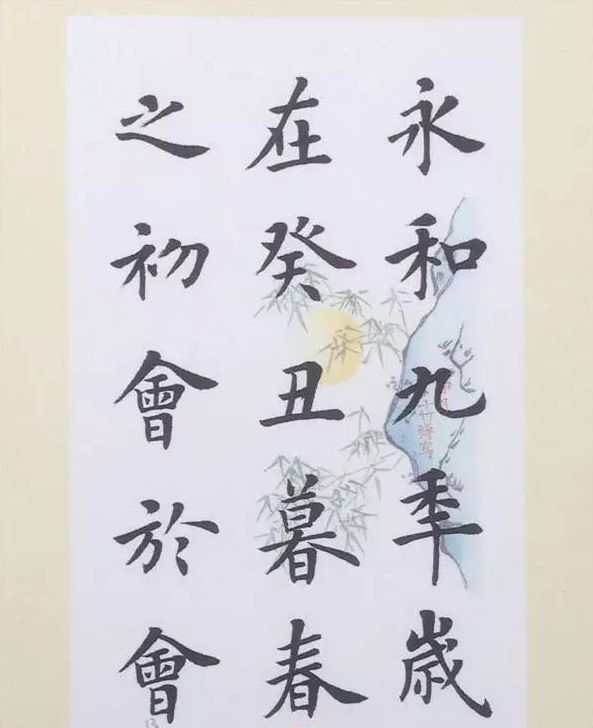 永和九年歳
在癸丑暮春
之初會於會